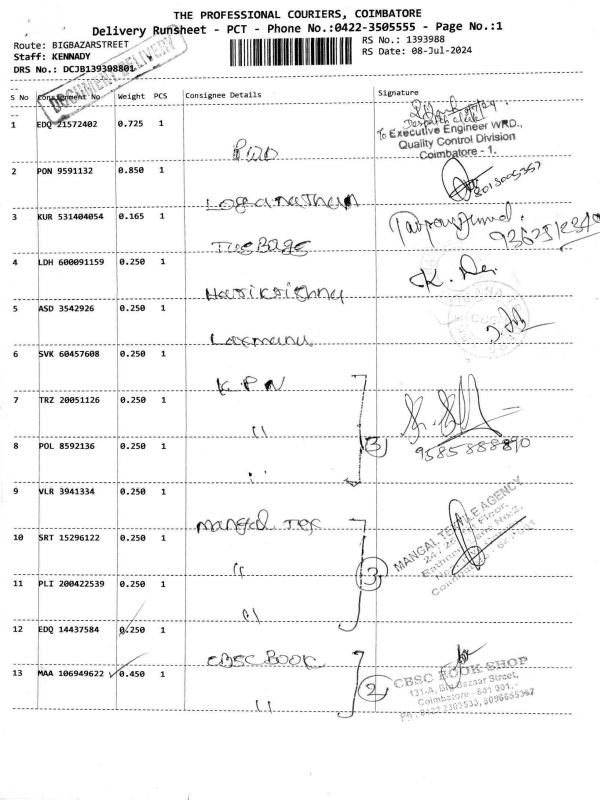 THE PROFESSIONAL COURIERS, COIMBATORE
Delivery Runsheet - PCT - Phone No.:0422-3505555 - Page No.:1
Route: BIGBAZARSTREET
RS No.: 1393988
Staff: KENNADY
RS Date: 08-Jul-2024
DRS No.: DCJB139398801
DOCUMENT DELIVERY
S No Consignment No Weight PCS Consignee Details Signature
1 EDQ 21572402 0.725 1 PWD
To Executive Engineer WRD.,
Quality Control Division
Coimbatore - 1.
2 PON 9591132 0.850 1 Loganathan
3 KUR 531404054 0.165 1
4 LDH 600091159 0.250 1 Harikrishna K.
5 ASD 3542926 0.250 1 Laxmanu
6 SVK 60457608 0.250 1 K.P.N
7 TRZ 20051126 0.250 1 "
3
9585888890
8 POL 8592136 0.250 1 "
9 VLR 3941334 0.250 1 Mangal Tex
MANGAL TEXTILE AGENCY
10 SRT 15296122 0.250 1 "
3
11 PLI 200422539 0.250 1 "
12 EDQ 14437584 0.250 1 CBSC BOOK
13 MAA 106949622 0.450 1 "
2
CBSC BOOK SHOP
131-A, Big Bazaar Street,
Coimbatore - 641 001.